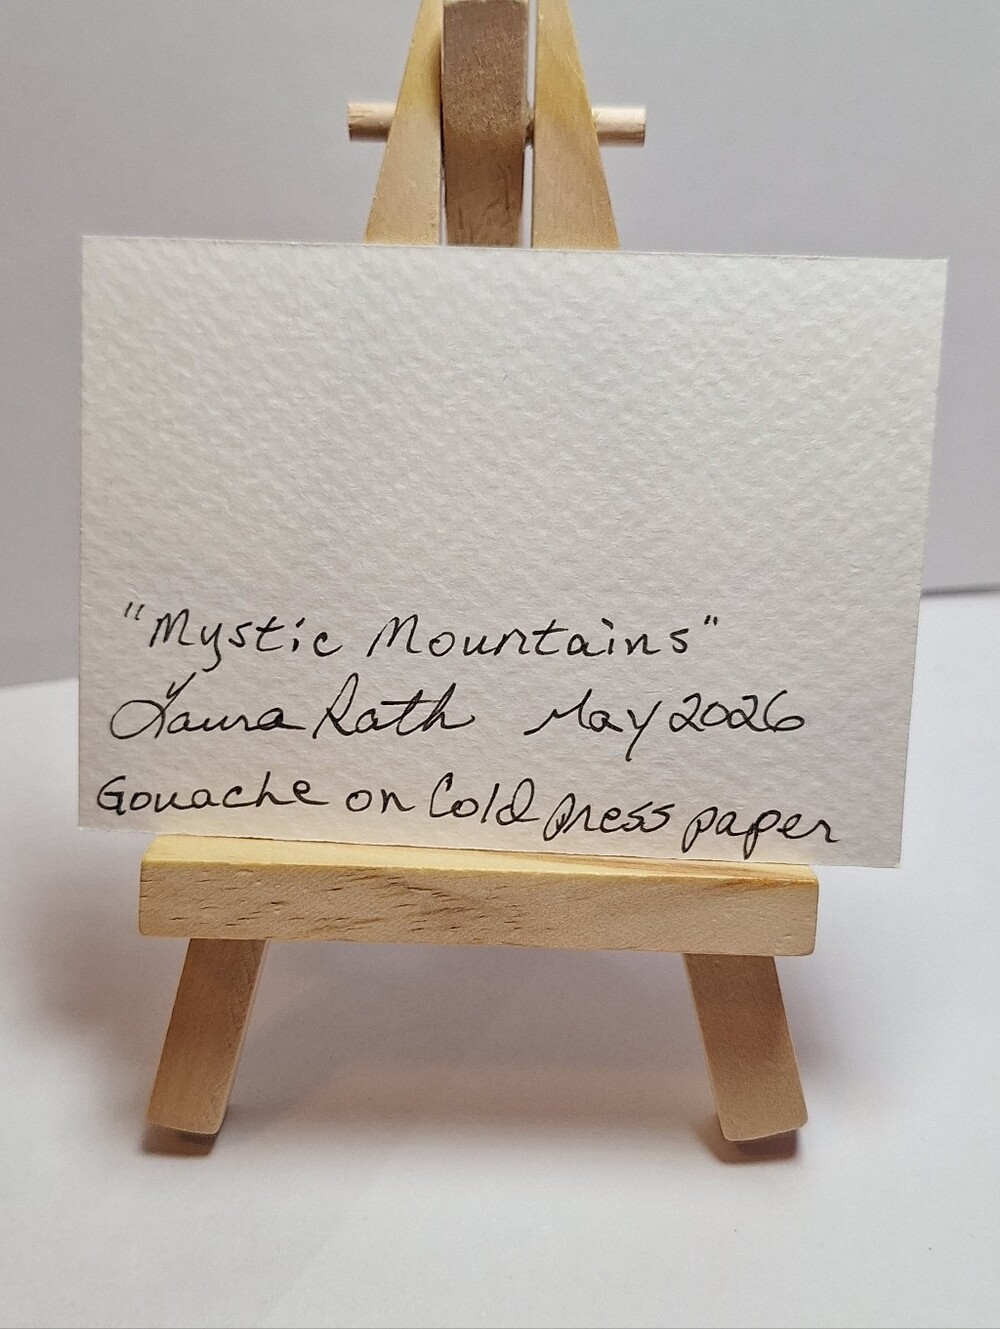 "Mystic Mountains"
Laura Rath May 2026
Gouache on Cold press paper